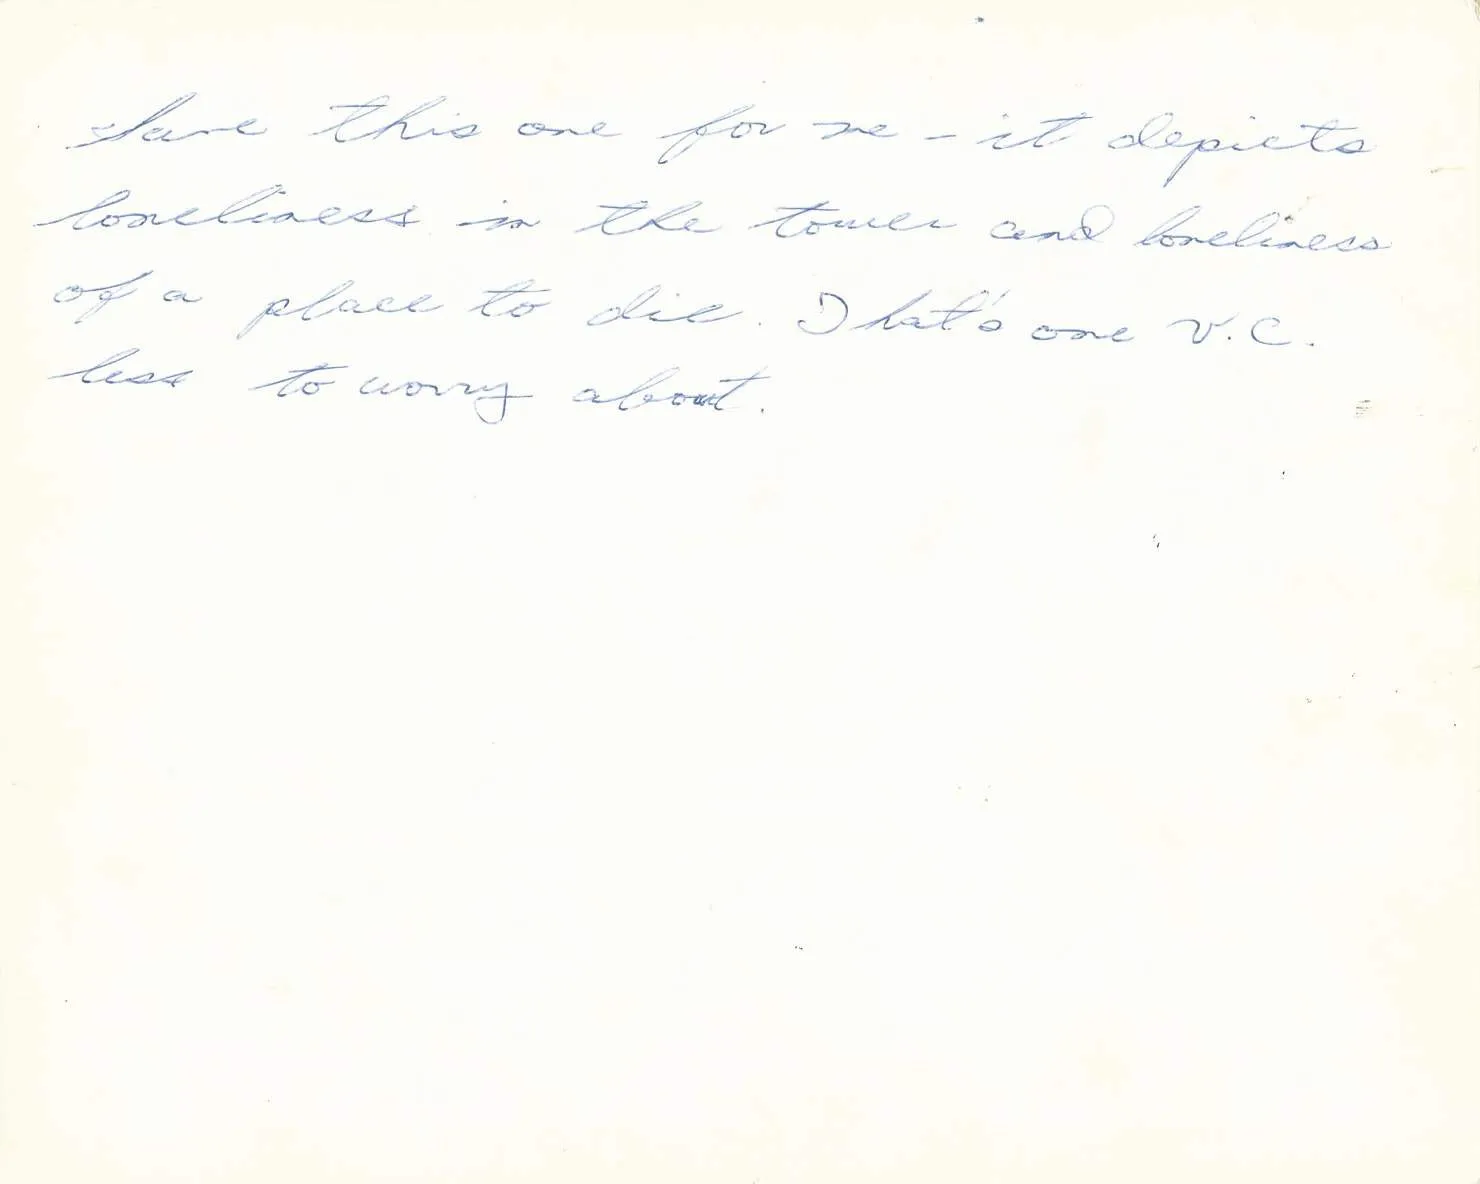 Save this one for me - it depicts
loneliness in the tower and loneliness
of a place to die. That's one V.C.
less to worry about.